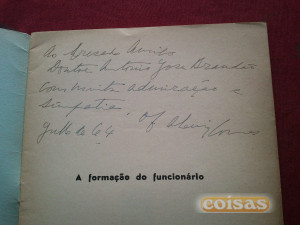 Ao Amigo
Doutor António José Brandão
com muita admiração e
simpatia
de 64
A formação do funcionário
coisas